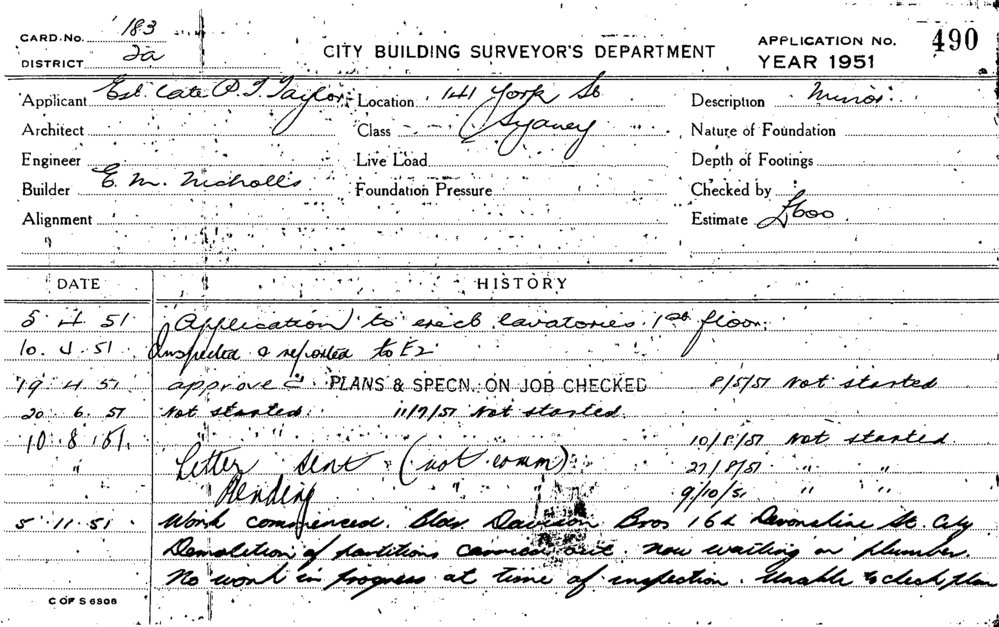 CARD. No. 183
DISTRICT 2a
CITY BUILDING SURVEYOR'S DEPARTMENT
APPLICATION No. 490
YEAR 1951
Applicant Est. Late P. T. Taylor Location 141 York St Description Minor
Architect Class Sydney Nature of Foundation
Engineer Live Load Depth of Footings
Builder E. M. Nicholls Foundation Pressure Checked by
Alignment Estimate £600
DATE HISTORY
5 4 51 Application to erect lavatories 1st floor.
10. 4. 51 Inspected & reported to E2
19 4 51 approved PLANS & SPECN. ON JOB CHECKED 8/5/51 Not started
20 6. 51 Not started. 11/7/51 Not started
10. 8. 51. " " " 10/8/51 Not started
" Letter sent (not comm) 27/8/51 " "
Pending " " 9/10/51 " "
5 11. 51. Work commenced. Davison Bros 16 Devonshire St. City
Demolition of partitions carried out. Now waiting on plumber.
No work in progress at time of inspection. Unable to check plan
C OF S 6806